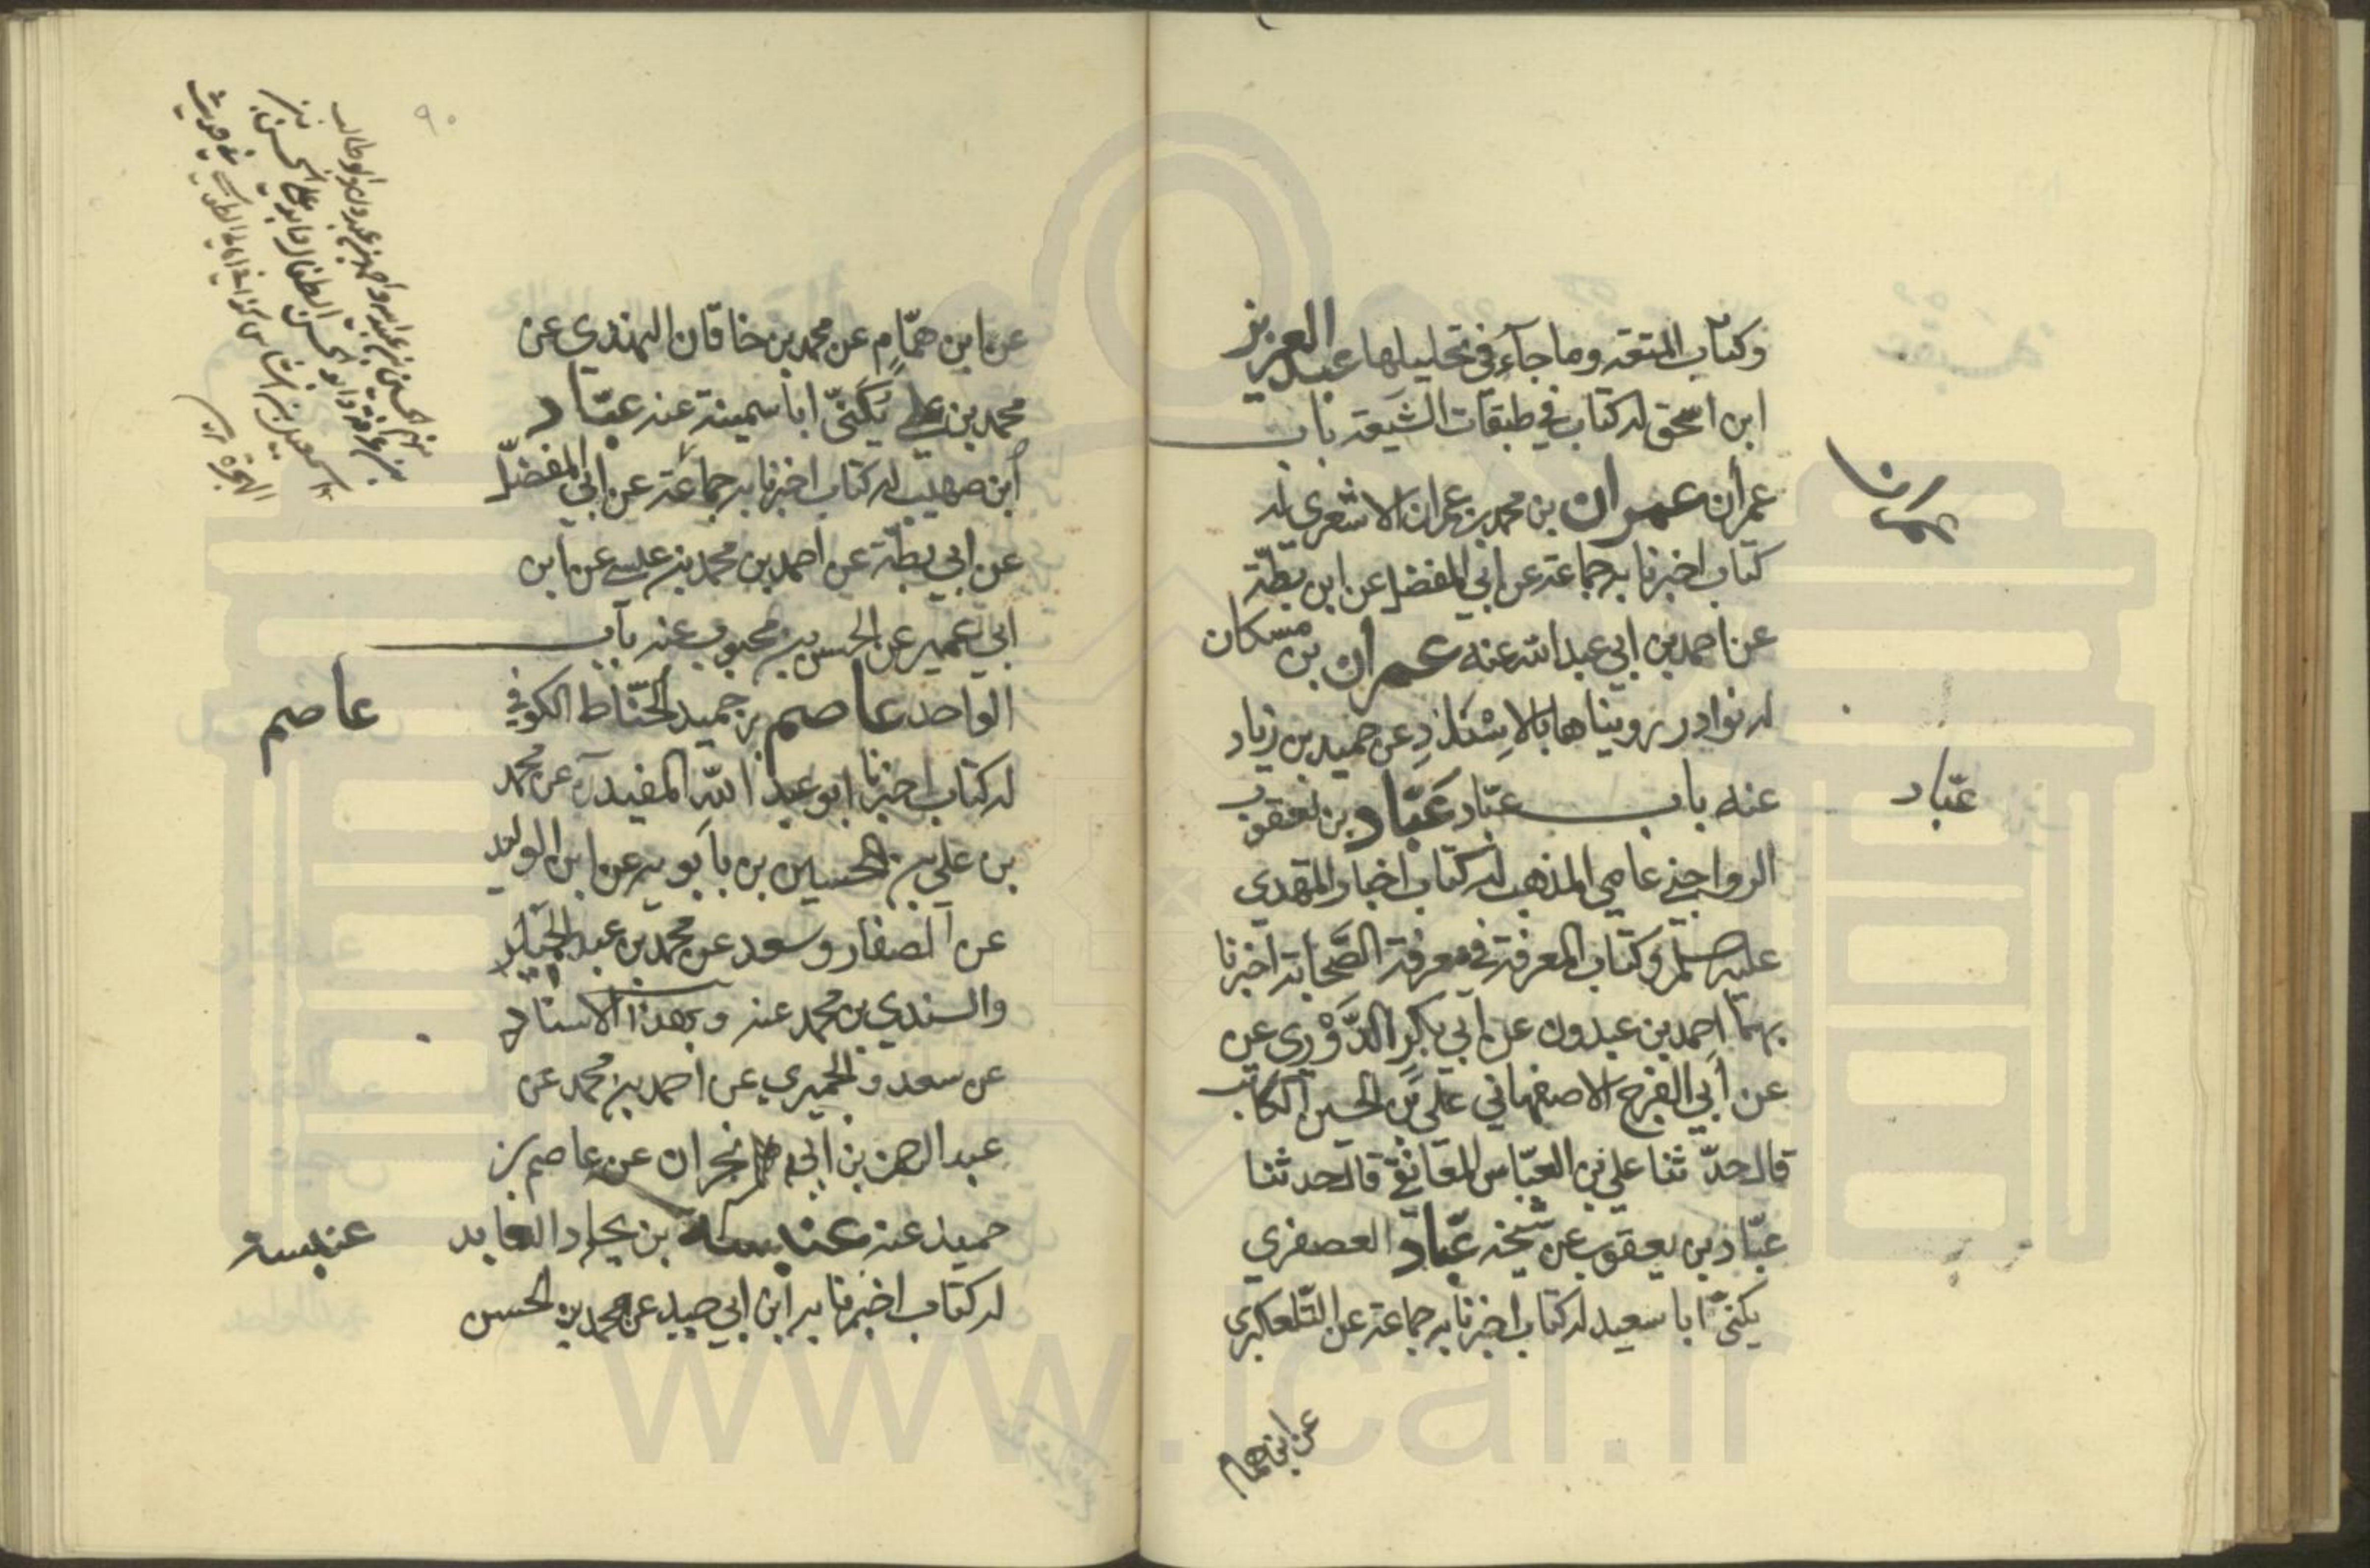 وكتاب المتعة وما جاء في تحليلها عبد العزيز
ابن اسحق له كتاب في طبقات الشيعة باب
عمران عمران بن محمد بن عمران الاشعري له
عمران
كتاب اخبرنا به جماعة عن ابي المفضل عن ابن بطّة
عن احمد بن ابي عبد الله عنه عمران بن مسكان
له نوادر رويناها بالاسناد عن حميد بن زياد
عنه باب عبّاد عَبّاد بن يعقوب
عبّاد
الرواجني عامي المذهب له كتاب اخبار المهدي
عليه وكتاب المعرفة في معرفة الصّحابة اخبرنا
بهما احمد بن عبدون عن ابي بكر الدَّوْرِي عن
عن أبي الفرج الاصفهاني علي بن الحسين الكاتب
قال حدّثنا علي بن العبّاس المقانعي قال حدثنا
عبّاد بن يعقوب عن شيخه عبّاد العصفري
يكنّى ابا سعيد له كتاب اخبرنا به جماعة عن التّلعكبري
عن ابن همام
٩٠
عن ابن همّامٍ عن محمد بن خاقان النهدي عن
محمد بن علي يُكَنّى ابا سمينة عنه عبّاد
ابن صهيب له كتاب اخبرنا به جماعة عن ابي المفضّل
عن ابي بطّة عن احمد بن محمد بن عيسى عن ابن
ابي عمير عن الحسن بن محبوب عنه باب
الواحد عاصم بن حميد الحنّاط الكوفي
عاصم
له كتاب اخبرنا ابو عبد الله المفيد عن محمد
بن علي بن الحسين بن بابويه عن ابن الوليد
عن الصفار وسعد عن محمد بن عبد الحميد
والسندي بن محمد عنه وبهذا الاسناد
عن سعد والحميري عن احمد بن محمد عن
عبد الرحمن بن ابي نجران عن عاصم بن
حميد عنه عنبسة بن بجاد العابد
عنبسة
له كتاب اخبرنا به ابن ابي جيد عن محمد بن الحسن
www.icar.ir